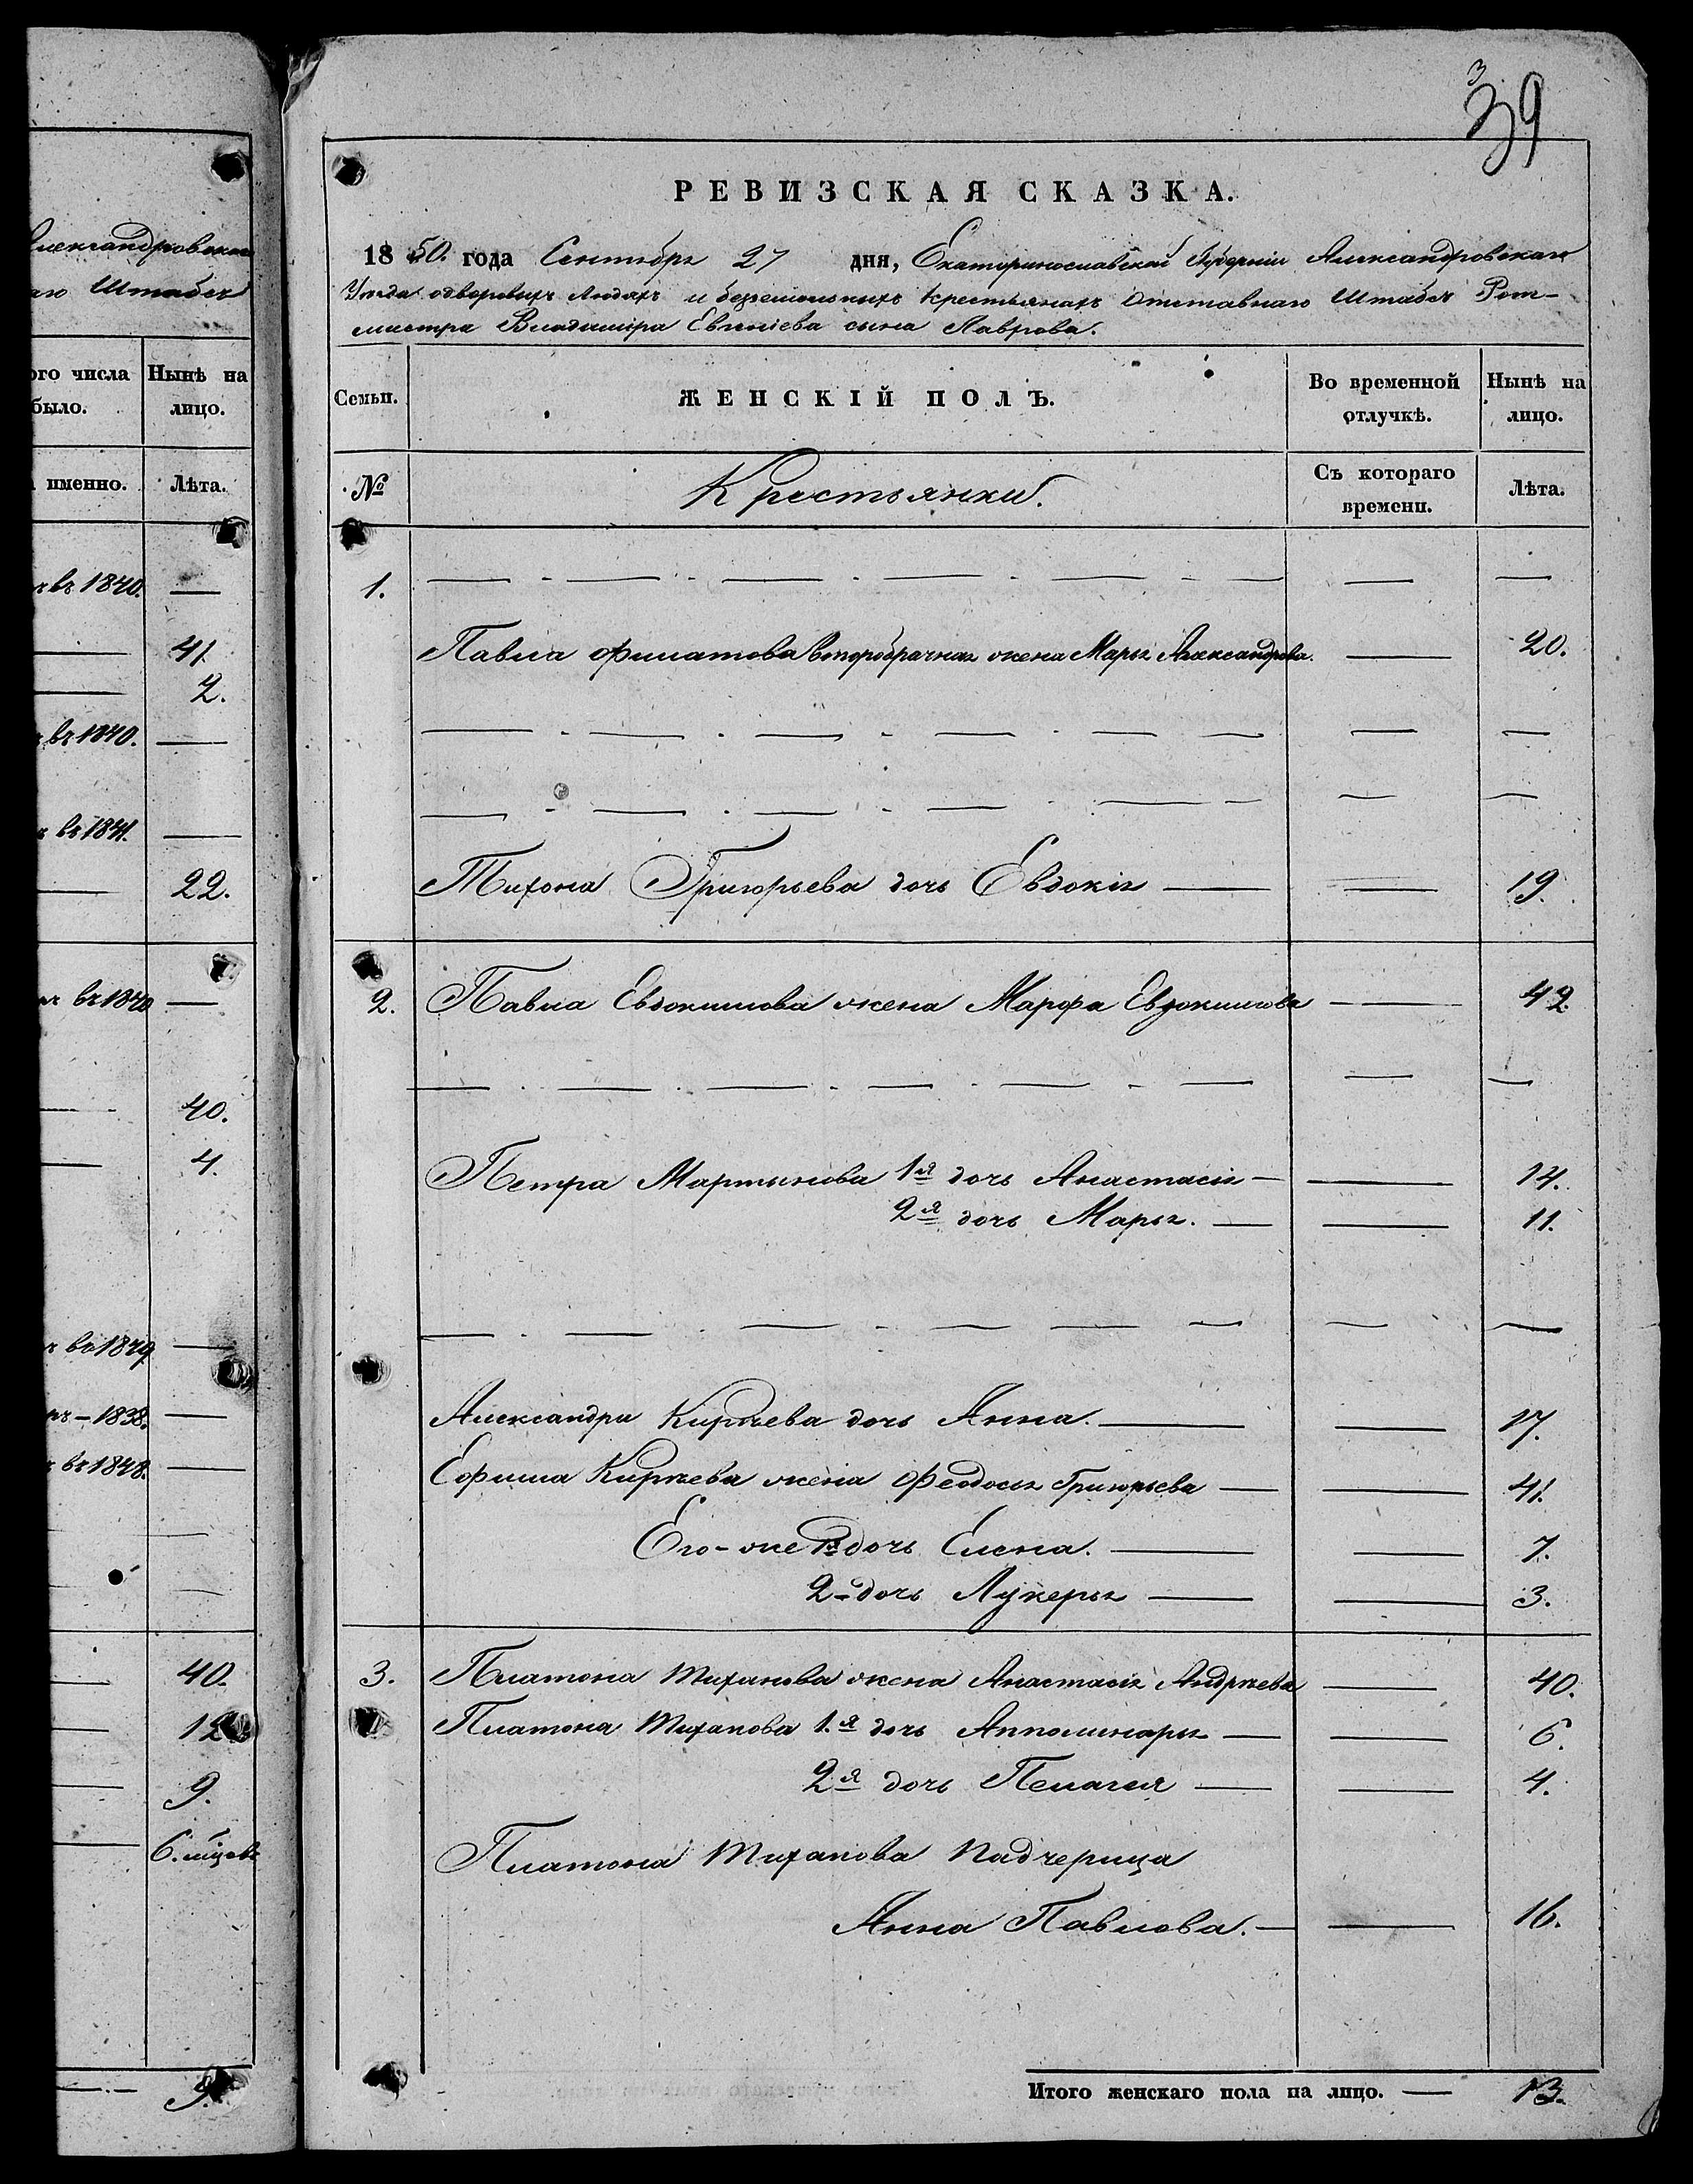 лександровскаго
аго Штабсъ
ого числа
было.
Нынѣ на
лицо.
именно.
Лѣта.
въ 1840. —
— 41.
— 2.
въ 1840. —
въ 1841. —
— 22.
въ 1840 —
— 40.
— 4.
въ 1849 —
— 1838. —
въ 1848. —
— 40.
— 9.
— 6. мѣсяц
9.
3
39
РЕВИЗСКАЯ СКАЗКА.
1850. года Сентября 27 дня, Екатеринославской Губерніи Александровскаго
Уѣзда о дворовыхъ людяхъ и безземельныхъ крестьянахъ Отставнаго Штабсъ Рот-
мистра Владиміра Евгеніева сына Лаврова.
Семьи.
ЖЕНСКІЙ ПОЛЪ.
Во временной
отлучкѣ.
Нынѣ на
лицо.
№
Крестьянки.
Съ котораго
времени.
Лѣта.
1. — — — — — —
Павла Филатова второбрачная жена Марья Александрова. — 20.
— — — — — — —
— — — — — — —
Тихона Григорьева дочь Евдокія — — 19.
2. Павла Евдокимова жена Марфа Евдокимова — 42.
— — — — — — — —
Петра Мартынова 1я дочь Анастасія — — 14.
2я дочь Марья. — — 11.
— — — — — — — —
Александра Кирѣева дочь Анна. — — 17.
Ефима Кирѣева жена Феодосья Григорьева — — 41.
Его-же 1я дочь Елена. — — 7.
2-дочь Лукерья — — 3.
3. Платона Тиханова жена Анастасія Андрѣева — 40.
Платона Тиханова 1.я дочь Апполинарья — — 6.
2я дочь Пелагея — — 4.
Платона Тиханова Падчерица
Анна Павлова. — — 16.
Итого женскаго пола на лицо. — 13.